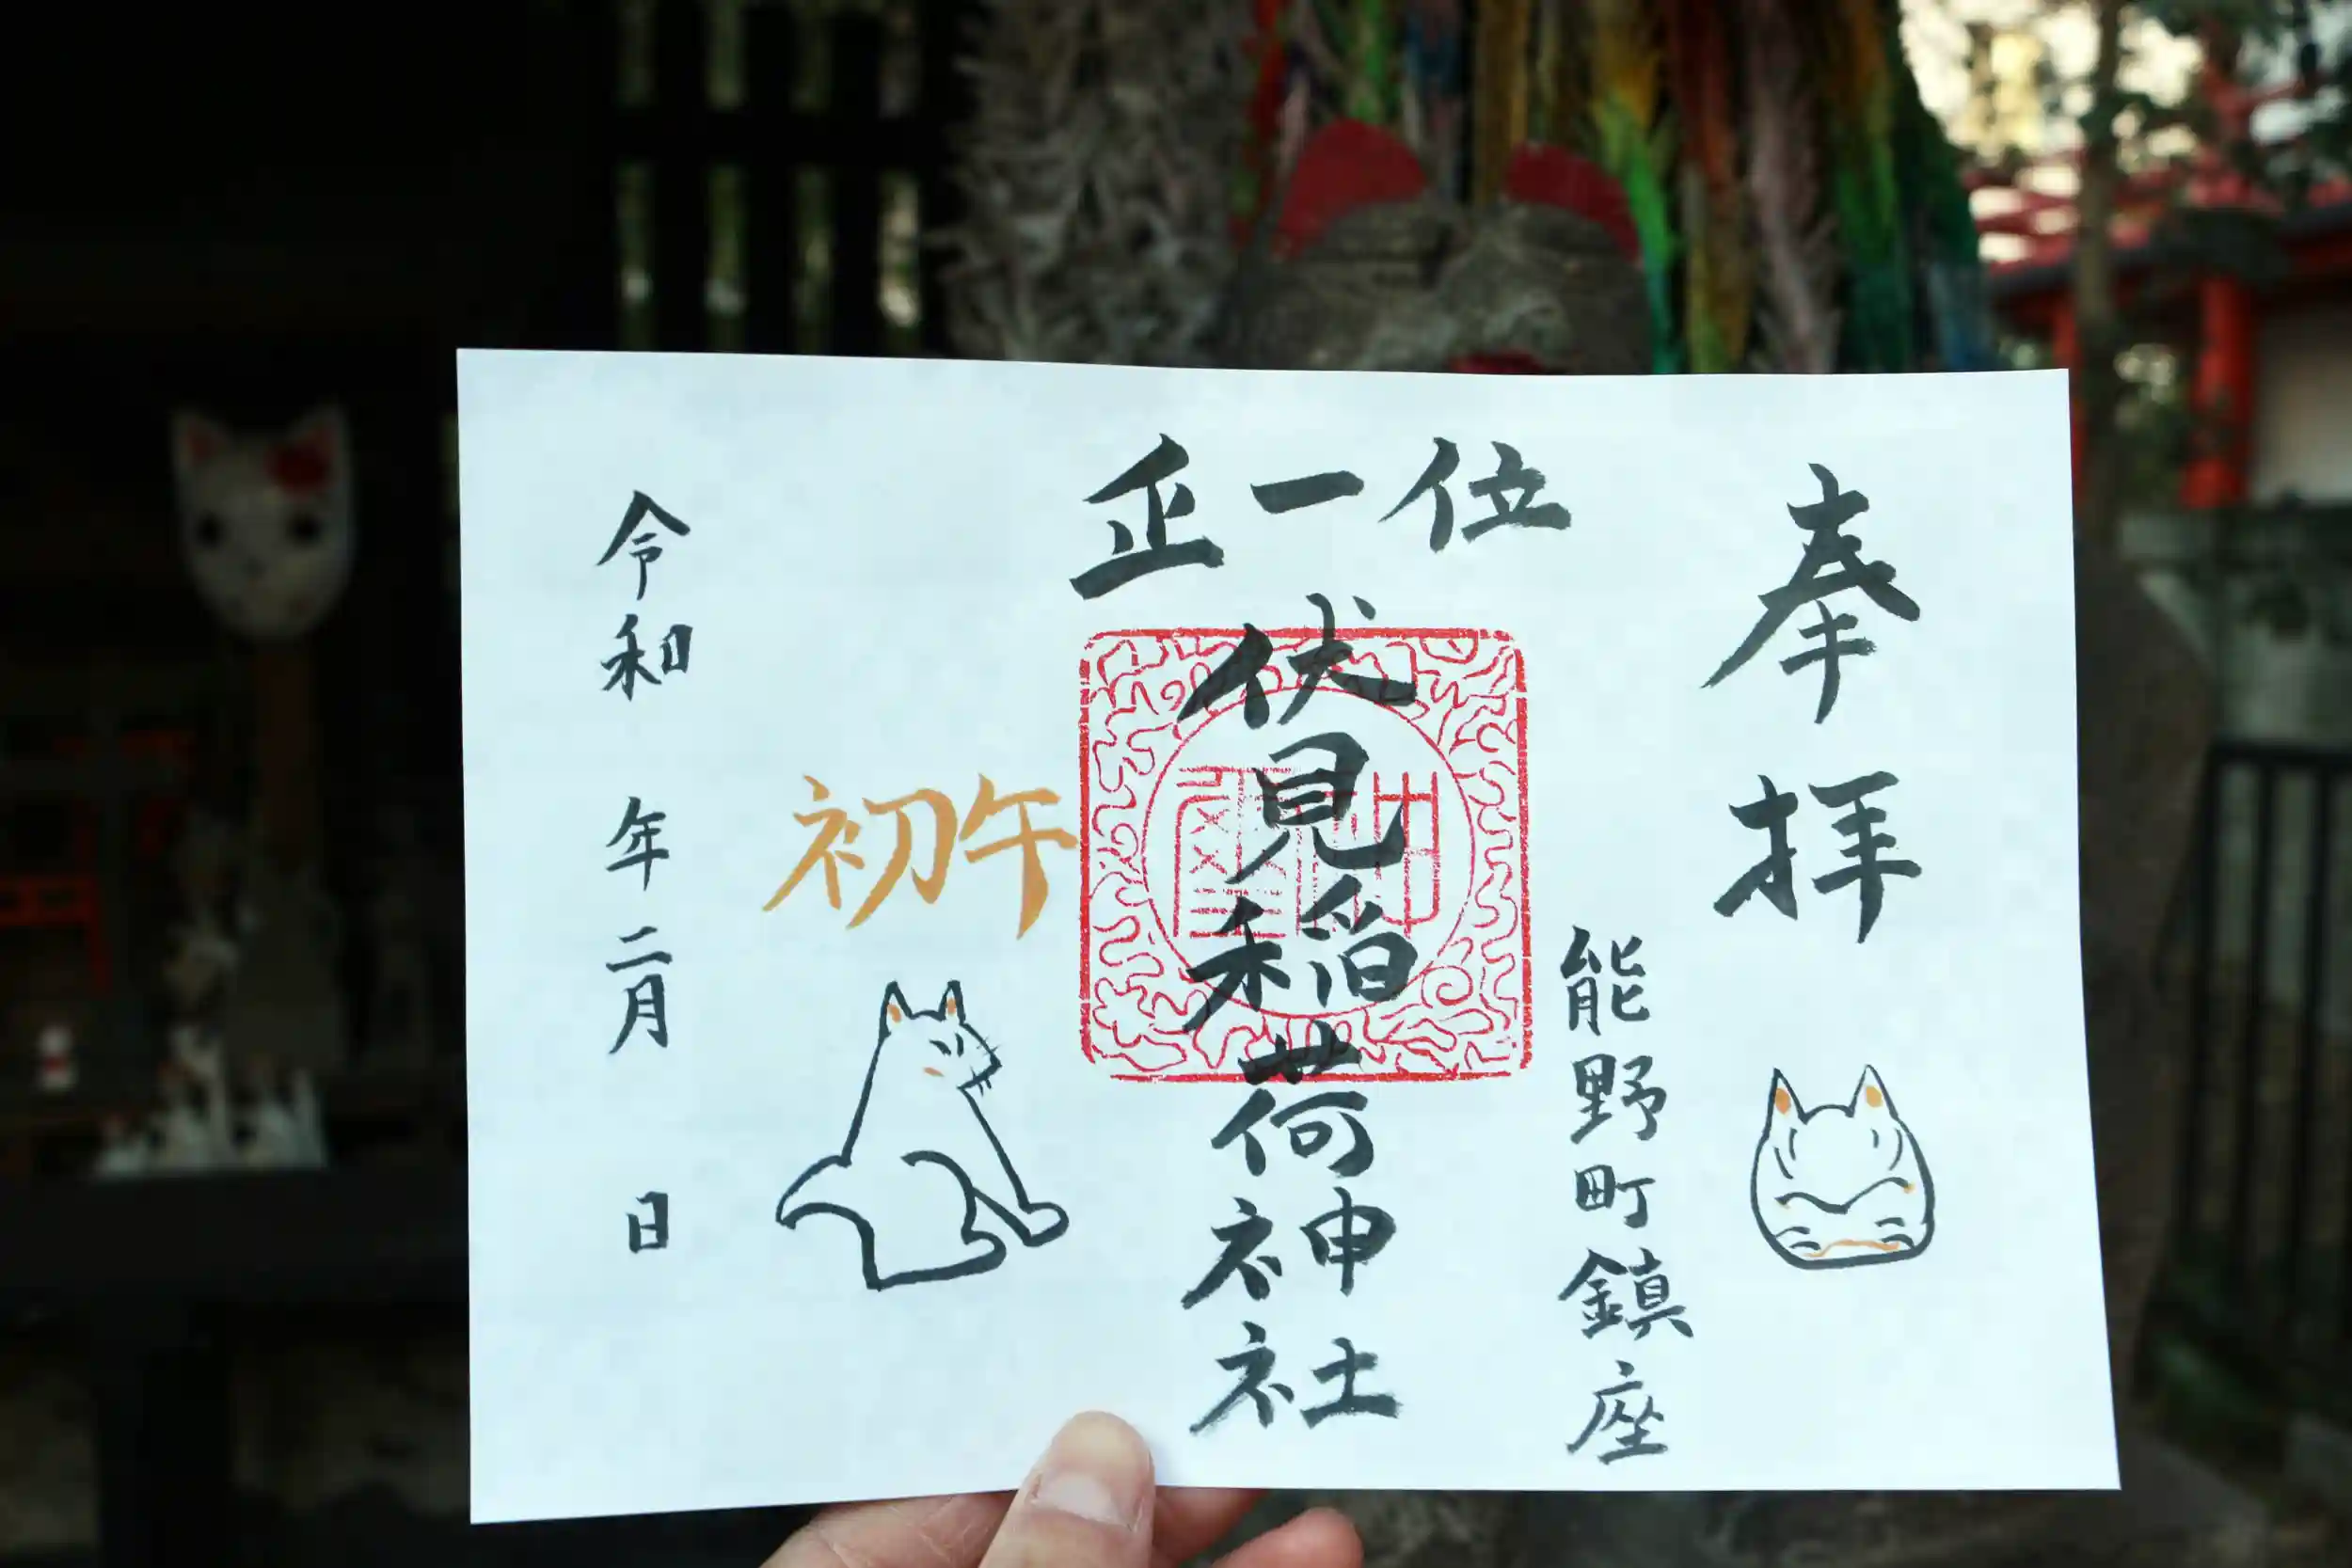 奉拝
能野町鎮座
正一位
伏見稲荷神社
初午
令和 年二月 日